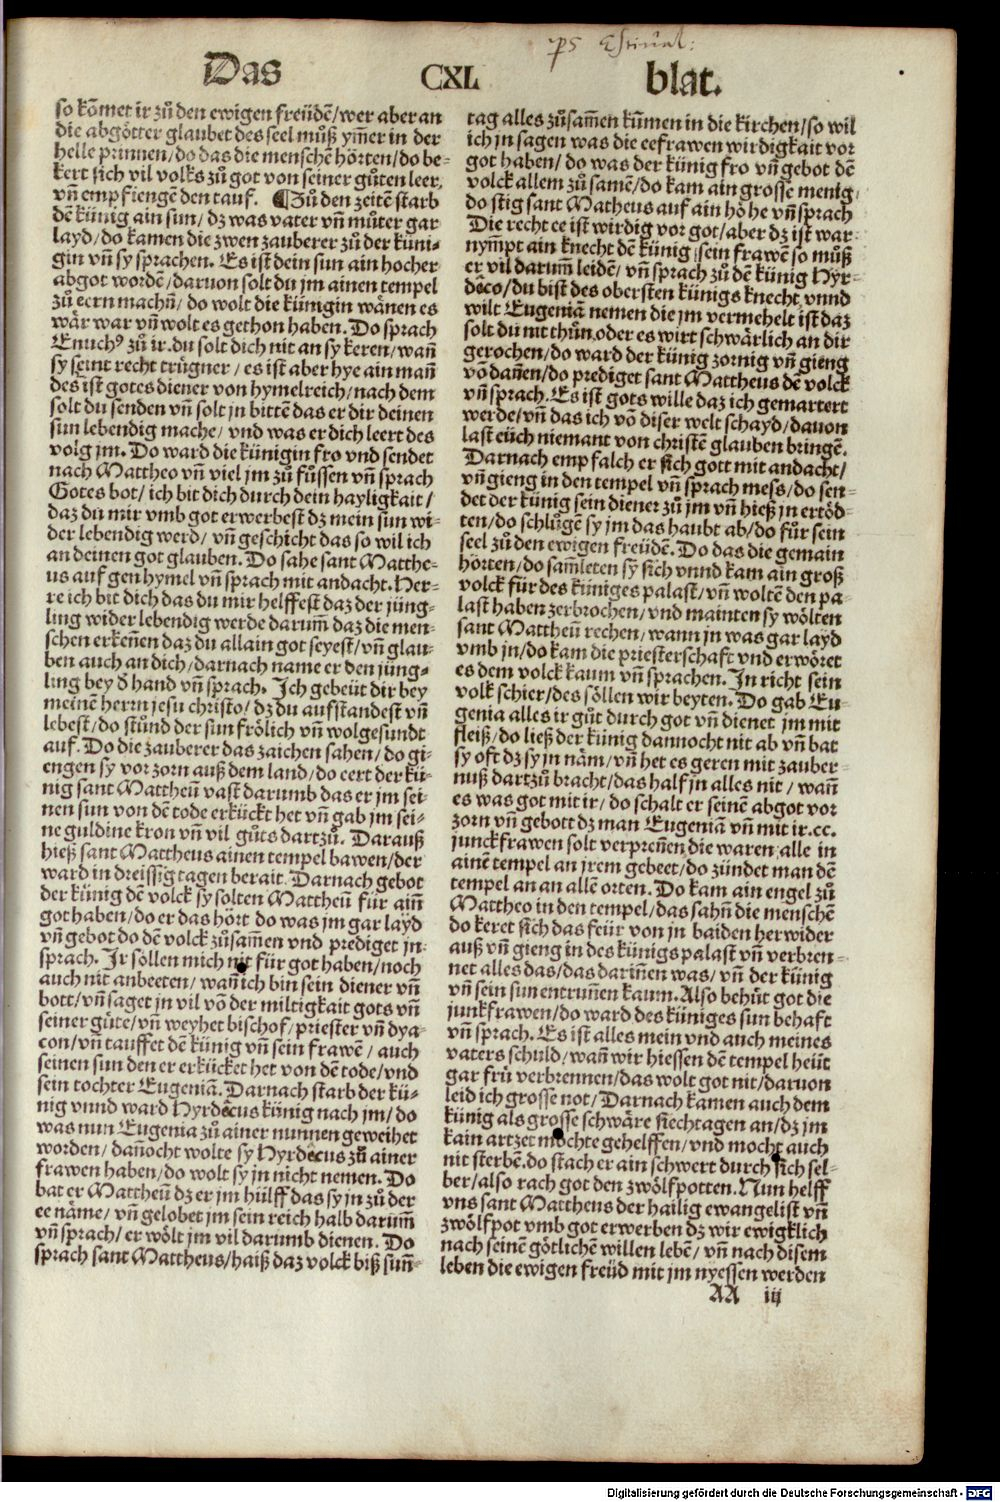 ps Estiual:
Das CXL blat.
so kōmet ir zů den ewigen freüdē/wer aber an
die abgötter glaubet des seel můß ym̄er in der
helle prinnen/do das die menschē hörten/do be-
kert sich vil volks zů got von seiner gůten leer,
vn̄ empfiengē den tauf. ¶Zů den zeitē starb
dē künig ain sun/dz was vater vn̄ můter gar
layd/do kamen die zwen zauberer zů der küni-
gin vn̄ sy sprachen. Es ist dein sun ain hocher
abgot wordē/daruon solt du jm ainen tempel
zů eern machn̄/do wolt die künigin wänen es
wär war vn̄ wolt es gethon haben. Do sprach
Enuchꝰ zů ir.du solt dich nit an sy keren/wan̄
sy seint recht trügner/es ist aber hye ain man̄
des ist gotes diener von hymelreich/nach dem
solt du senden vn̄ solt jn bittē das er dir deinen
sun lebendig mache/vnd was er dich leert des
volg jm. Do ward die künigin fro vnd sendet
nach Mattheo vn̄ viel jm zů fůssen vn̄ sprach
Gotes bot/ich bit dich durch dein hayligkait/
daz du mir vmb got erwerbest dz mein sun wi-
der lebendig werd/vn̄ geschicht das so wil ich
an deinen got glauben. Do sahe sant Matthe-
us auf gen hymel vn̄ sprach mit andacht. Her-
re ich bit dich das du mir helffest daz der jüng-
ling wider lebendig werde darum̄ daz die men-
schen erkēnen daz du allain got seyest/vn̄ glau-
ben auch an dich/darnach name er den jüng-
ling bey d̄ hand vn̄ sprach. Ich gebeüt dir bey
meinē herrn jesu christo/dz du aufstandest vn̄
lebest/do stůnd der sun frölich vn̄ wolgesundt
auf. Do die zauberer das zaichen sahen/do gi-
engen sy vor zorn auß dem land/do eert der kü-
nig sant Mattheū vast darumb das er jm sei-
nen sun von dē tode erkückt het vn̄ gab jm sei-
ne guldine kron vn̄ vil gůts dartzů. Darauß
hieß sant Mattheus ainen tempel bawen/der
ward in dreissig tagen berait. Darnach gebot
der künig dē volck sy solten Mattheū für ain̄
got haben/do er das hört do was jm gar layd
vn̄ gebot do dē volck zůsam̄en vnd prediget jn
sprach. Ir söllen mich nit für got haben/noch
auch nit anbeeten/wan̄ ich bin sein diener vn̄
bott/vn̄ saget jn vil vō der miltigkait gots vn̄
seiner güte/vn̄ weyhet bischof/priester vn̄ dya-
con/vn̄ tauffet dē künig vn̄ sein frawē/auch
seinen sun den er erkücket het von dē tode/vnd
sein tochter Eugeniā. Darnach starb der kü-
nig vnnd ward Hyrdecus künig nach jm/do
was nun Eugenia zů ainer nunnen geweihet
worden/dan̄ocht wolte sy Hyrdecus zů ainer
frawen haben/do wolt sy jn nicht nemen. Do
bat er Mattheū dz er jm hülff das sy jn zů der
ee näme/vn̄ gelobet jm sein reich halb darum̄
vn̄ sprach/er wölt jm vil darumb dienen. Do
sprach sant Mattheus/haiß daz volck biß sun̄-
tag alles zůsam̄en kum̄en in die kirchen/so wil
ich jn sagen was die eefrawen wirdigkait vor
got haben/do was der künig fro vn̄ gebot dē
volck allem zů samē/do kam ain grosse menig,
do stig sant Matheus auf ain höhe vn̄ sprach
Die recht ee ist wirdig vor got/aber dz ist war:
nym̄pt ain knecht dē künig sein frawē so můß
er vil darum̄ leidē/vn̄ sprach zů dē künig Hyr-
deco/du bist des obersten künigs knecht vnnd
wilt Eugeniā nemen die jm vermehelt ist daz
solt du nit thůn,oder es wirt schwärlich an dir
gerochen/do ward der künig zornig vn̄ gieng
vō dan̄en/do prediget sant Mattheus dē volck
vn̄ sprach. Es ist gots wille daz ich gemartert
werde/vn̄ das ich vō diser welt schayd/dauon
last eüch niemant von christē glauben bringē.
Darnach empfalch er sich gott mit andacht/
vn̄ gieng in den tempel vn̄ sprach mess/do sen-
det der künig sein diener zů jm vn̄ hieß jn ertöd-
ten/do schlůgē sy jm das haubt ab/do fůr sein
seel zů den ewigen freüdē. Do das die gemain
hörten/do sam̄leten sy sich vnnd kam ain groß
volck für des küniges palast/vn̄ woltē den pa-
last haben zerbrochen/vnd mainten sy wölten
sant Mattheū rechen/wann jn was gar layd
vmb jn/do kam die priesterschaft vnd erwöret
es dem volck kaum vn̄ sprachen. In richt sein
volk schier/des söllen wir beyten. Do gab Eu-
genia alles ir gůt durch got vn̄ dienet jm mit
fleiß/do ließ der künig dannocht nit ab vn̄ bat
sy oft dz sy jn näm/vn̄ het es geren mit zauber-
nuß dartzů bracht/das half jn alles nit/wan̄
es was got mit ir/do schalt er seinē abgot vor
zorn vn̄ gebott dz man Eugeniā vn̄ mit ir.cc.
junckfrawen solt verpren̄en,die waren alle in
ainē tempel an jrem gebeet/do zündet man dē
tempel an an allē orten. Do kam ain engel zů
Mattheo in den tempel/das sahn̄ die menschē
do keret sich das feür von jn baiden her wider
auß vn̄ gieng in des künigs palast vn̄ verbren-
net alles das/das darin̄en was/vn̄ der künig
vn̄ sein sun entrun̄en kaum. Also behüt got die
junkfrawen/do ward des küniges sun behaft
vn̄ sprach. Es ist alles mein vnd auch meines
vaters schuld/wan̄ wir hiessen dē tempel heüt
gar frü verbrennen/das wolt got nit/daruon
leid ich grosse not/Darnach kamen auch dem
künig als grosse schwäre siechtagen an/dz jm
kain artzet mochte gehelffen/vnd mocht auch
nit sterbē.do stach er ain schwert durch sich sel-
ber/also rach got den zwölfpotten. Nun helff
vns sant Mattheus der hailig ewangelist vn̄
zwölfpot vmb got erwerben dz wir ewigklich
nach seinē götlichē willen lebē/vn̄ nach disem
leben die ewigen freüd mit jm nyessen werden
AA iij
Digitalisierung gefördert durch die Deutsche Forschungsgemeinschaft - DFG